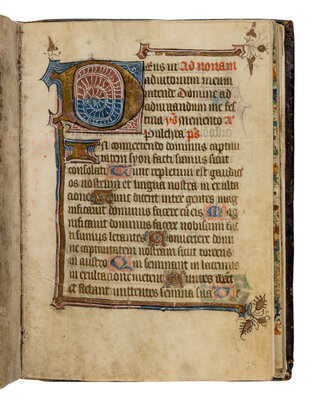 Deus in Ad nonam
adiutorium meum
intende Domine ad
adiuuandum me fes
tina ps memento
Pulcra ps
In conuertendo dominus captiui
tatem syon facti sumus sicut
consolati Tunc repletum est gaudio
os nostrum et lingua nostra in exulta
cione Tunc dicent inter gentes mag
nificauit dominus facere cū eis Mag
nificauit dominus facere nobiscum fac
ti sumus letantes Conuertere domi
ne captiuitatem nostram sicut torrens
in austro Qui seminant in lacrimis
in exultacione metent Euntes ibant
et flebant mittentes semina sua